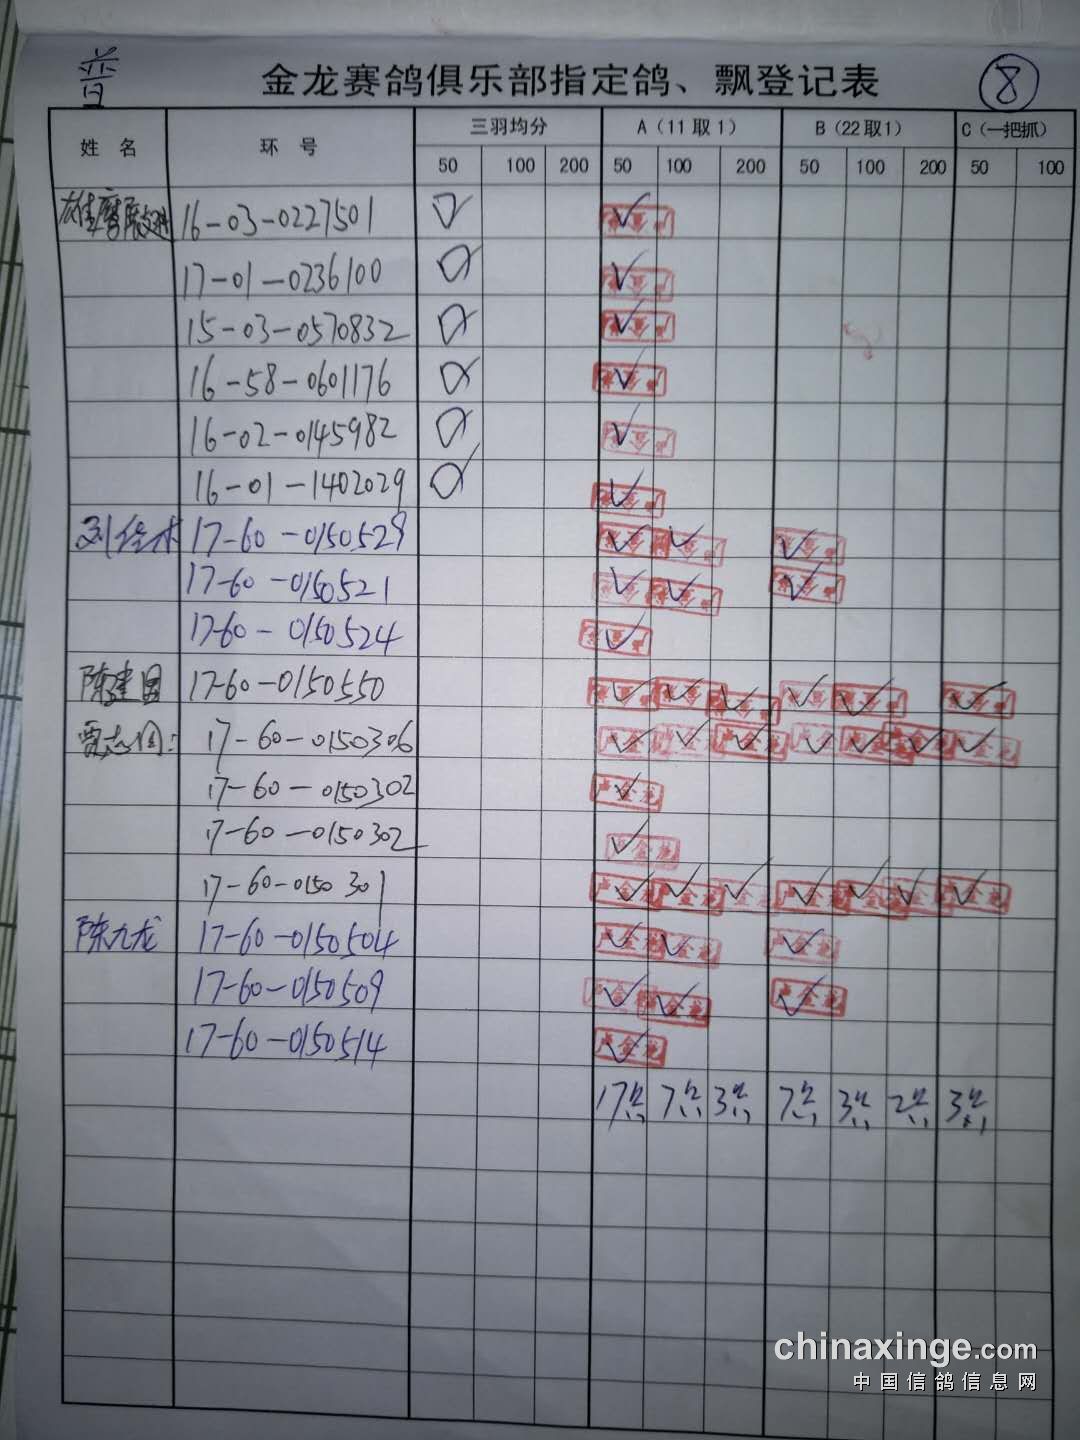 普
金龙赛鸽俱乐部指定鸽、飘登记表
8
姓 名 环 号 三羽均分 A（11取1） B（22取1） C（一把抓）
50 100 200 50 100 200 50 100 200 50 100
雄鹰展翅 16-03-0227501 ✓ ✓
17-01-0236100 ✓ ✓
15-03-0570832 ✓ ✓
16-58-0601176 ✓ ✓
16-02-0145982 ✓ ✓
16-01-1402029 ✓ ✓
17-60-0150529 ✓ ✓ ✓
17-60-0150521 ✓ ✓ ✓
17-60-0150524 ✓
陈建国 17-60-0150550 ✓ ✓ ✓ ✓ ✓ ✓
贾志国: 17-60-0150306 ✓ ✓ ✓ ✓ ✓ ✓ ✓
17-60-0150302 ✓
17-60-0150302 ✓
17-60-0150301 ✓ ✓ ✓ ✓ ✓ ✓ ✓
陈九龙 17-60-0150504 ✓ ✓ ✓
17-60-0150509 ✓ ✓ ✓
17-60-0150514 ✓
17点 7点 3点 7点 3点 2点 3点
chinaxinge.com
中国信鸽信息网